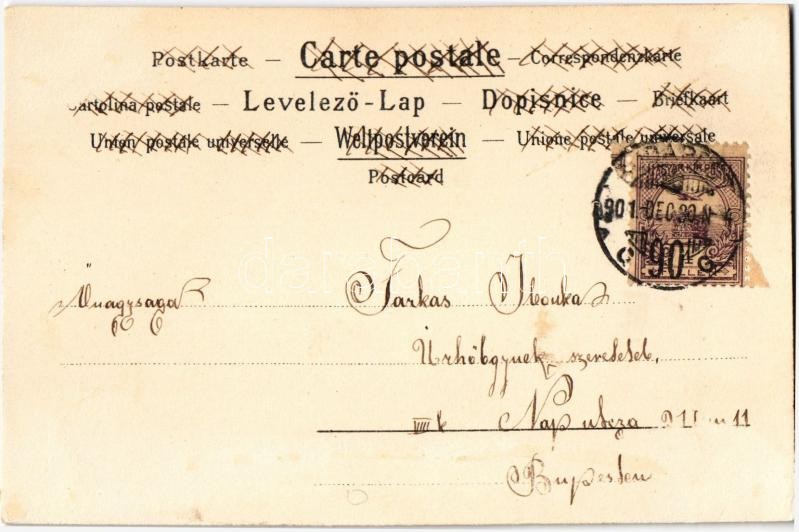 Postkarte – Carte postale – Correspondenzkarte
Cartolina postale – Levelező-Lap – Dopisnice – Briefkaart
Union postale universelle – Weltpostverein – Unione postale universale
Postcard
901 DEC 30 N 4
90
Farkas Ilonka
Őnagysága
Úrhölgynek szeretetel,
VIII k Nap utcza 11
Bupesten